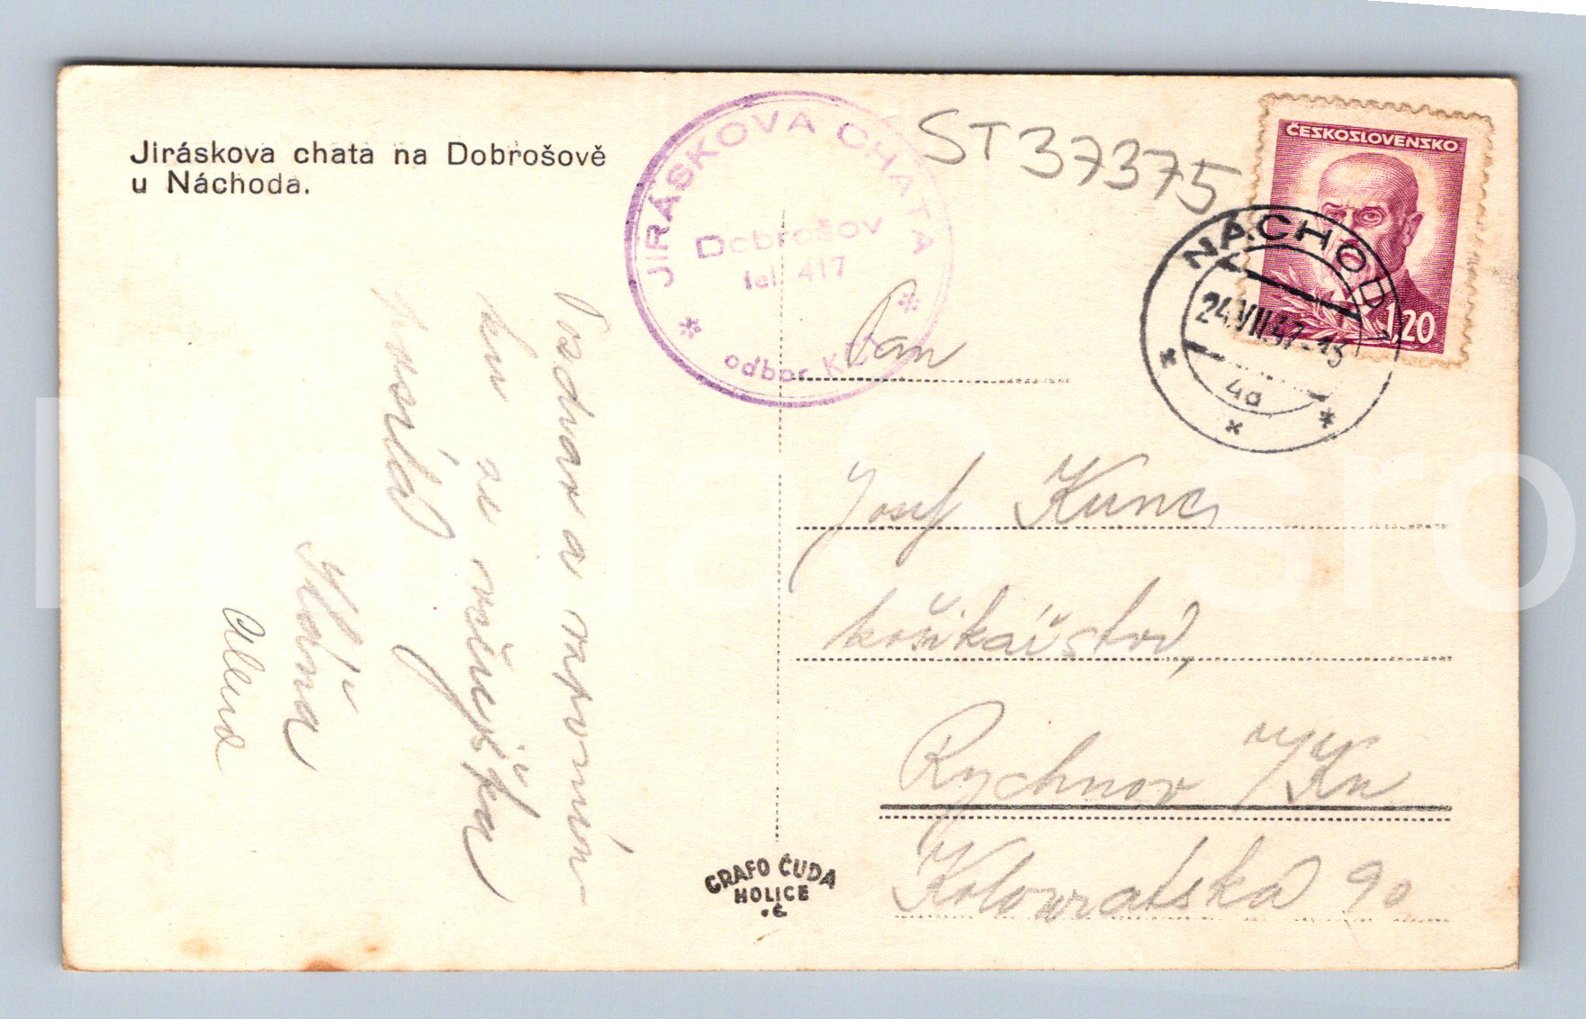 Jiráskova chata na Dobrošově
u Náchoda.
JIRÁSKOVA CHATA
Dobrošov
tel. 417
odbor KČT
ST37375
ČESKOSLOVENSKO
1.20
NÁCHOD 1
24.VII.47-13
4a
Pan
Josef Kunc
košíkářství,
Rychnov n/Kn
Kolowratská 90
Pozdrav a vzpomín
ku ze výletu
posílá
GRAFO ČUDA
HOLICE
v.Č.